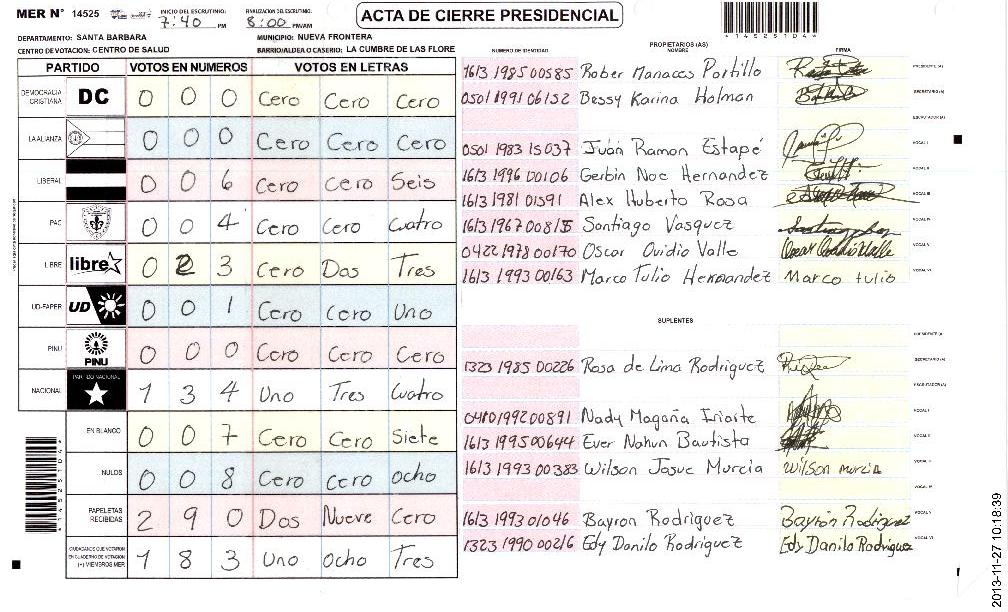 MER N° 14525 INICIO DEL ESCRUTINIO: 7:40 PM FINALIZACION DEL ESCRUTINIO: 8:00 PM/AM
ACTA DE CIERRE PRESIDENCIAL
41452510
DEPARTAMENTO: SANTA BARBARA MUNICIPIO: NUEVA FRONTERA
CENTRO DE VOTACION: CENTRO DE SALUD BARRIO/ALDEA O CASERIO: LA CUMBRE DE LAS FLORE
PARTIDO VOTOS EN NUMEROS VOTOS EN LETRAS
DEMOCRACIA CRISTIANA DC 0 0 0 Cero Cero Cero
LA ALIANZA 0 0 0 Cero Cero Cero
LIBERAL 0 0 6 Cero Cero Seis
PAC 0 0 4 Cero Cero Cuatro
LIBRE libre 0 2 3 Cero Dos Tres
UD-FAPER UD 0 0 1 Cero Cero Uno
PINU PINU 0 0 0 Cero Cero Cero
NACIONAL PARTIDO NACIONAL 1 3 4 Uno Tres Cuatro
EN BLANCO 0 0 7 Cero Cero Siete
NULOS 0 0 8 Cero Cero Ocho
PAPELETAS RECIBIDAS 2 9 0 Dos Nueve Cero
CIUDADANOS QUE VOTARON EN CUADERNO DE VOTACION (+) MIEMBROS MER 1 8 3 Uno Ocho Tres
PROPIETARIOS (AS)
NUMERO DE IDENTIDAD NOMBRE FIRMA
1613 1985 00585 Rober Manaces Portillo PRESIDENTE (A)
0501 1991 06152 Bessy Karina Holman SECRETARIO (A)
ESCRUTADOR (A)
0501 1983 15037 Juan Ramon Estapé VOCAL I
1613 1996 00106 Gerbin Noe Hernandez VOCAL II
1613 1981 01591 Alex Huberto Rosa VOCAL III
1613 1967 00815 Santiago Vasquez VOCAL IV
0422 1978 00170 Oscar Ovidio Valle Oscar Ovidio Valle VOCAL V
1613 1993 00163 Marco Tulio Hernandez Marco tulio VOCAL VI
SUPLENTES
PRESIDENTE (A)
1323 1985 00226 Rosa de Lima Rodriguez SECRETARIO (A)
ESCRUTADOR (A)
0410 1992 00891 Nady Magaña Iriarte VOCAL I
1613 1995 00644 Ever Nahun Bautista VOCAL II
1613 1993 00383 Wilson Josue Murcia Wilson murcia VOCAL III
VOCAL IV
1613 1993 01046 Bayron Rodriguez Bayron Rodriguez VOCAL V
1323 1990 00216 Edy Danilo Rodriguez Edy Danilo Rodriguez VOCAL VI
2013-11-27 10:18:39